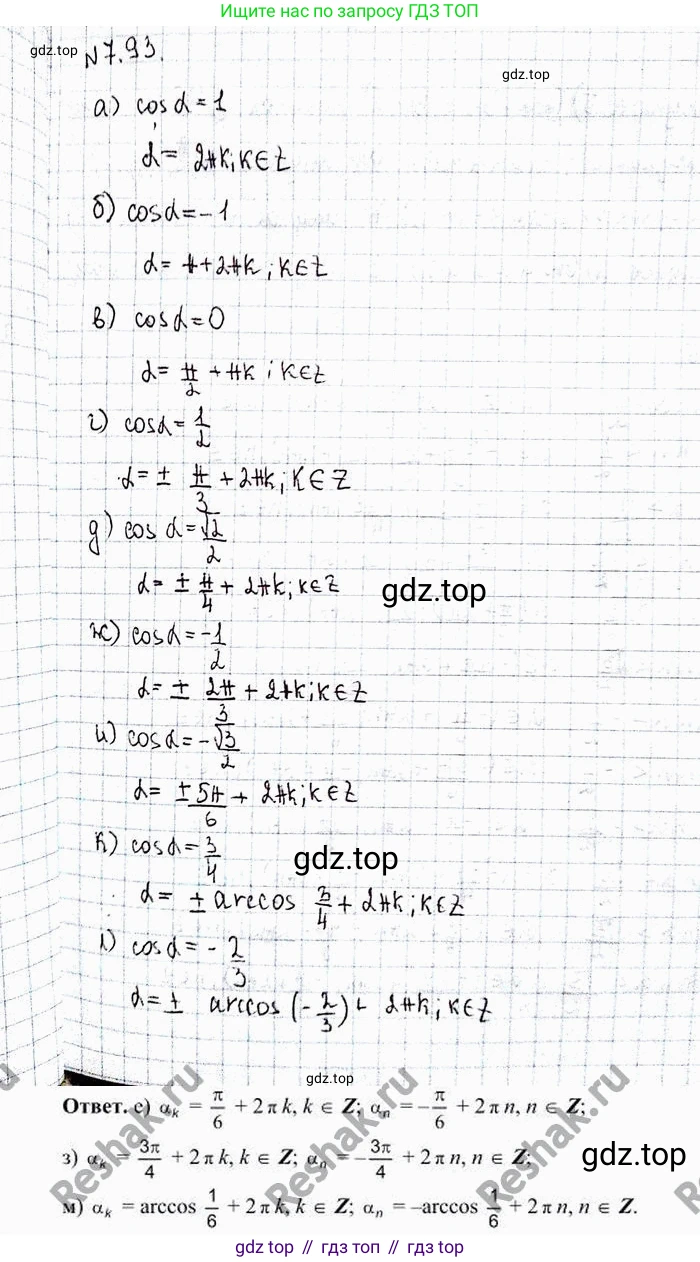 Ищите нас по запросу ГДЗ ТОП
gdz.top
N 7.93.
gdz.top
а) cos α = 1
α = 2πk; k ∈ Z
б) cos α = -1
α = π + 2πk; k ∈ Z
в) cos α = 0
α = π/2 + πk; k ∈ Z
г) cos α = 1/2
α = ± π/3 + 2πk; k ∈ Z
д) cos α = √2/2
α = ± π/4 + 2πk; k ∈ Z
gdz.top
ж) cos α = -1/2
α = ± 2π/3 + 2πk; k ∈ Z
и) cos α = -√3/2
α = ±5π/6 + 2πk; k ∈ Z
к) cos α = 3/4
gdz.top
α = ± arccos 3/4 + 2πk; k ∈ Z
л) cos α = - 2/3
α = ± arccos (-2/3) + 2πk; k ∈ Z
gdz.top
Ответ. е) αk = π/6 + 2πk, k ∈ Z; αn = -π/6 + 2πn, n ∈ Z;
з) αk = 3π/4 + 2πk, k ∈ Z; αn = -3π/4 + 2πn, n ∈ Z;
gdz.top
м) αk = arccos 1/6 + 2πk, k ∈ Z; αn = -arccos 1/6 + 2πn, n ∈ Z.
Reshak.ru
Reshak.ru
Reshak.ru
гдз топ // гдз.топ // gdz.top